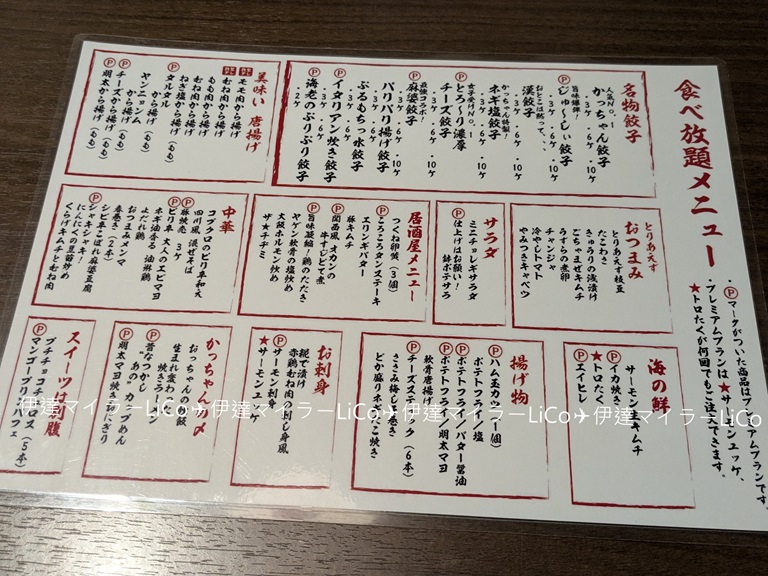 食べ放題メニュー
・Ⓟマークがついた商品はプレミアムプランです。
・プレミアムプランは★サーモンユッケ、
★トロたくが何回でもご注文できます。
名物餃子
人気NO.1
かっちゃん餃子
・3ケ ・6ケ ・10ケ
旨味爆弾！
Ⓟじゅ〜しぃ餃子
・3ケ ・6ケ ・10ケ
おとこは黙って、、、
漢餃子
・3ケ ・6ケ ・10ケ
かっちゃん特製！
ネギ塩餃子
・3ケ ・6ケ ・10ケ
女子受けNO.1
Ⓟとろ〜り濃厚
チーズ餃子
・3ケ ・6ケ ・10ケ
最強コラボ！
Ⓟ麻婆餃子
・3ケ ・6ケ ・10ケ
パリパリ揚げ餃子
・3ケ ・6ケ ・10ケ
ぷるもちっ水餃子
・3ケ ・6ケ
Ⓟイタリアン炊き餃子
・3ケ ・6ケ
Ⓟ海老のぷりぷり餃子
・2ケ
美味い 唐揚げ
モモ肉から揚げ
むね肉から揚げ
もも肉から揚げ
むね肉から揚げ
ねぎ塩から揚げ（もも）
Ⓟタルタル
から揚げ（もも）
ヤンニョンム
から揚げ（もも）
Ⓟチーズから揚げ（もも）
Ⓟ明太から揚げ（もも）
とりあえず
おつまみ
とりあえず枝豆
たこわさ
きゅうりの浅漬け
ごちゃまぜキムチ
うずらの煮卵
チャンジャ
冷やしトマト
やみつきキャベツ
サラダ
ミニチョレギサラダ
Ⓟ仕上げはお願い！
鉢ポテサラ
居酒屋メニュー
つくね卵黄（3個）
Ⓟころころタンステーキ
エリンギバター
豚キムチ
Ⓟ関西風オカンの
牛すじどて煮
Ⓟ旨味凝縮！鶏のたたき
ヤゲン軟骨の塩炒め
大阪ホルモン炒め
ザ★チヂミ
中華
コブクロのピリ辛和え
四川風 混ぜそば
Ⓟ豚焼売 3ケ
Ⓟピリ辛 大人のエビマヨ
ネギ油香る 油淋鶏
よだれ鶏
おつまみメンマ
春巻き（2本）
Ⓟシビ辛こぼれ麻婆豆腐
Ⓟシャキシャキ！
にんにくの芽茹炒め
くらげキムチとむね肉
海の鮮
サーモン生キムチ
Ⓟイカ焼き
★トロたく
Ⓟエイヒレ
揚げ物
Ⓟハム玉カツ（一個）
ポテトフライ/塩
Ⓟポテトフライ/バター醤油
Ⓟポテトフライ/明太マヨ
軟骨唐揚げ
Ⓟチーズスティック（6本）
ささみ梅しそ巻き
どか盛りネギたこ焼き
お刺身
親で漬け
赤鶏むね肉の刺し身風
Ⓟサーモン刺身
★サーモンユッケ
かっちゃん〆
おっちゃんの炒飯
生まれ変わった
焼きラーメン
Ⓟ昔なつかし
“あの”カップめん
Ⓟ明太マヨ焼きおにぎり
スイーツは別腹
Ⓟプチチョコチュロス（5本）
マンゴープリンパフェ
伊達マイラーLiCo✈伊達マイラーLiCo✈伊達マイラーLiCo